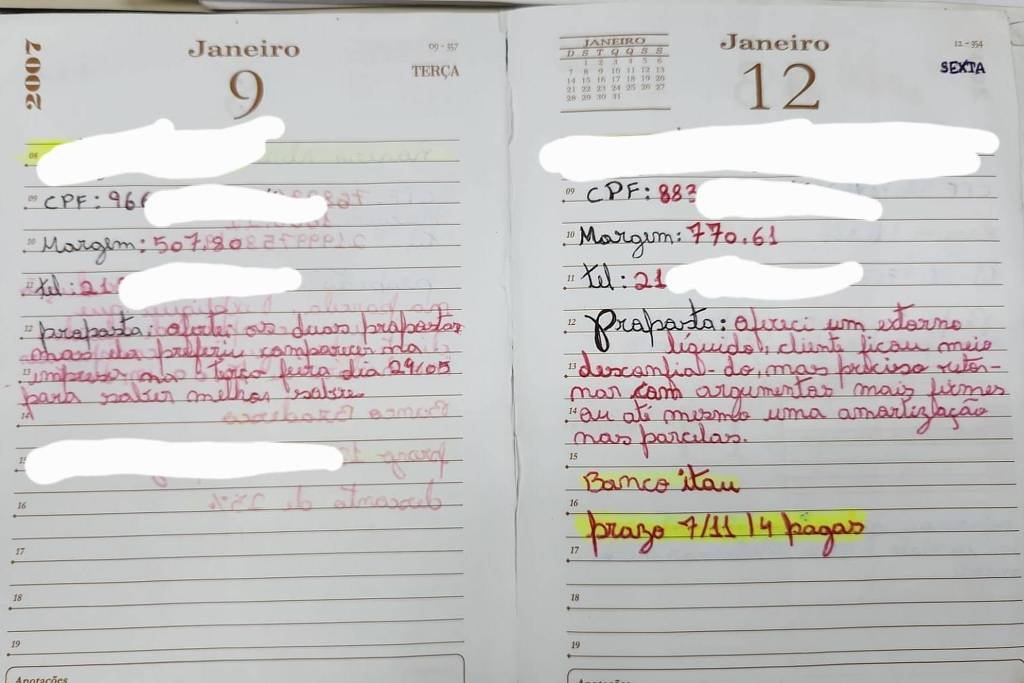 2007
Janeiro
09 - 357
9
TERÇA
08
09 CPF: 966
10 Margem: 507,80
11 tel: 21
12 proposta: oferti as duas propostas
mas ela preferiu comparecer na
13 empresa na terça feira dia 29/05
para saber melhor sobre
14
15
16
17
18
19
Anotações
JANEIRO
D S T Q Q S S
1 2 3 4 5 6
7 8 9 10 11 12 13
14 15 16 17 18 19 20
21 22 23 24 25 26 27
28 29 30 31
Janeiro
12 - 354
12
SEXTA
09 CPF: 883
10 Margem: 770,61
11 tel: 21
12 Proposta: Ofereci um estorno
líquido, cliente ficou meio
13 desconfial-do, mas preciso retor-
nar com argumentos mais firmes
14 ou até mesmo uma amortização
nas parcelas.
15
Banco itau
16
prazo 7/11 14 pagas
17
18
19
Anotações